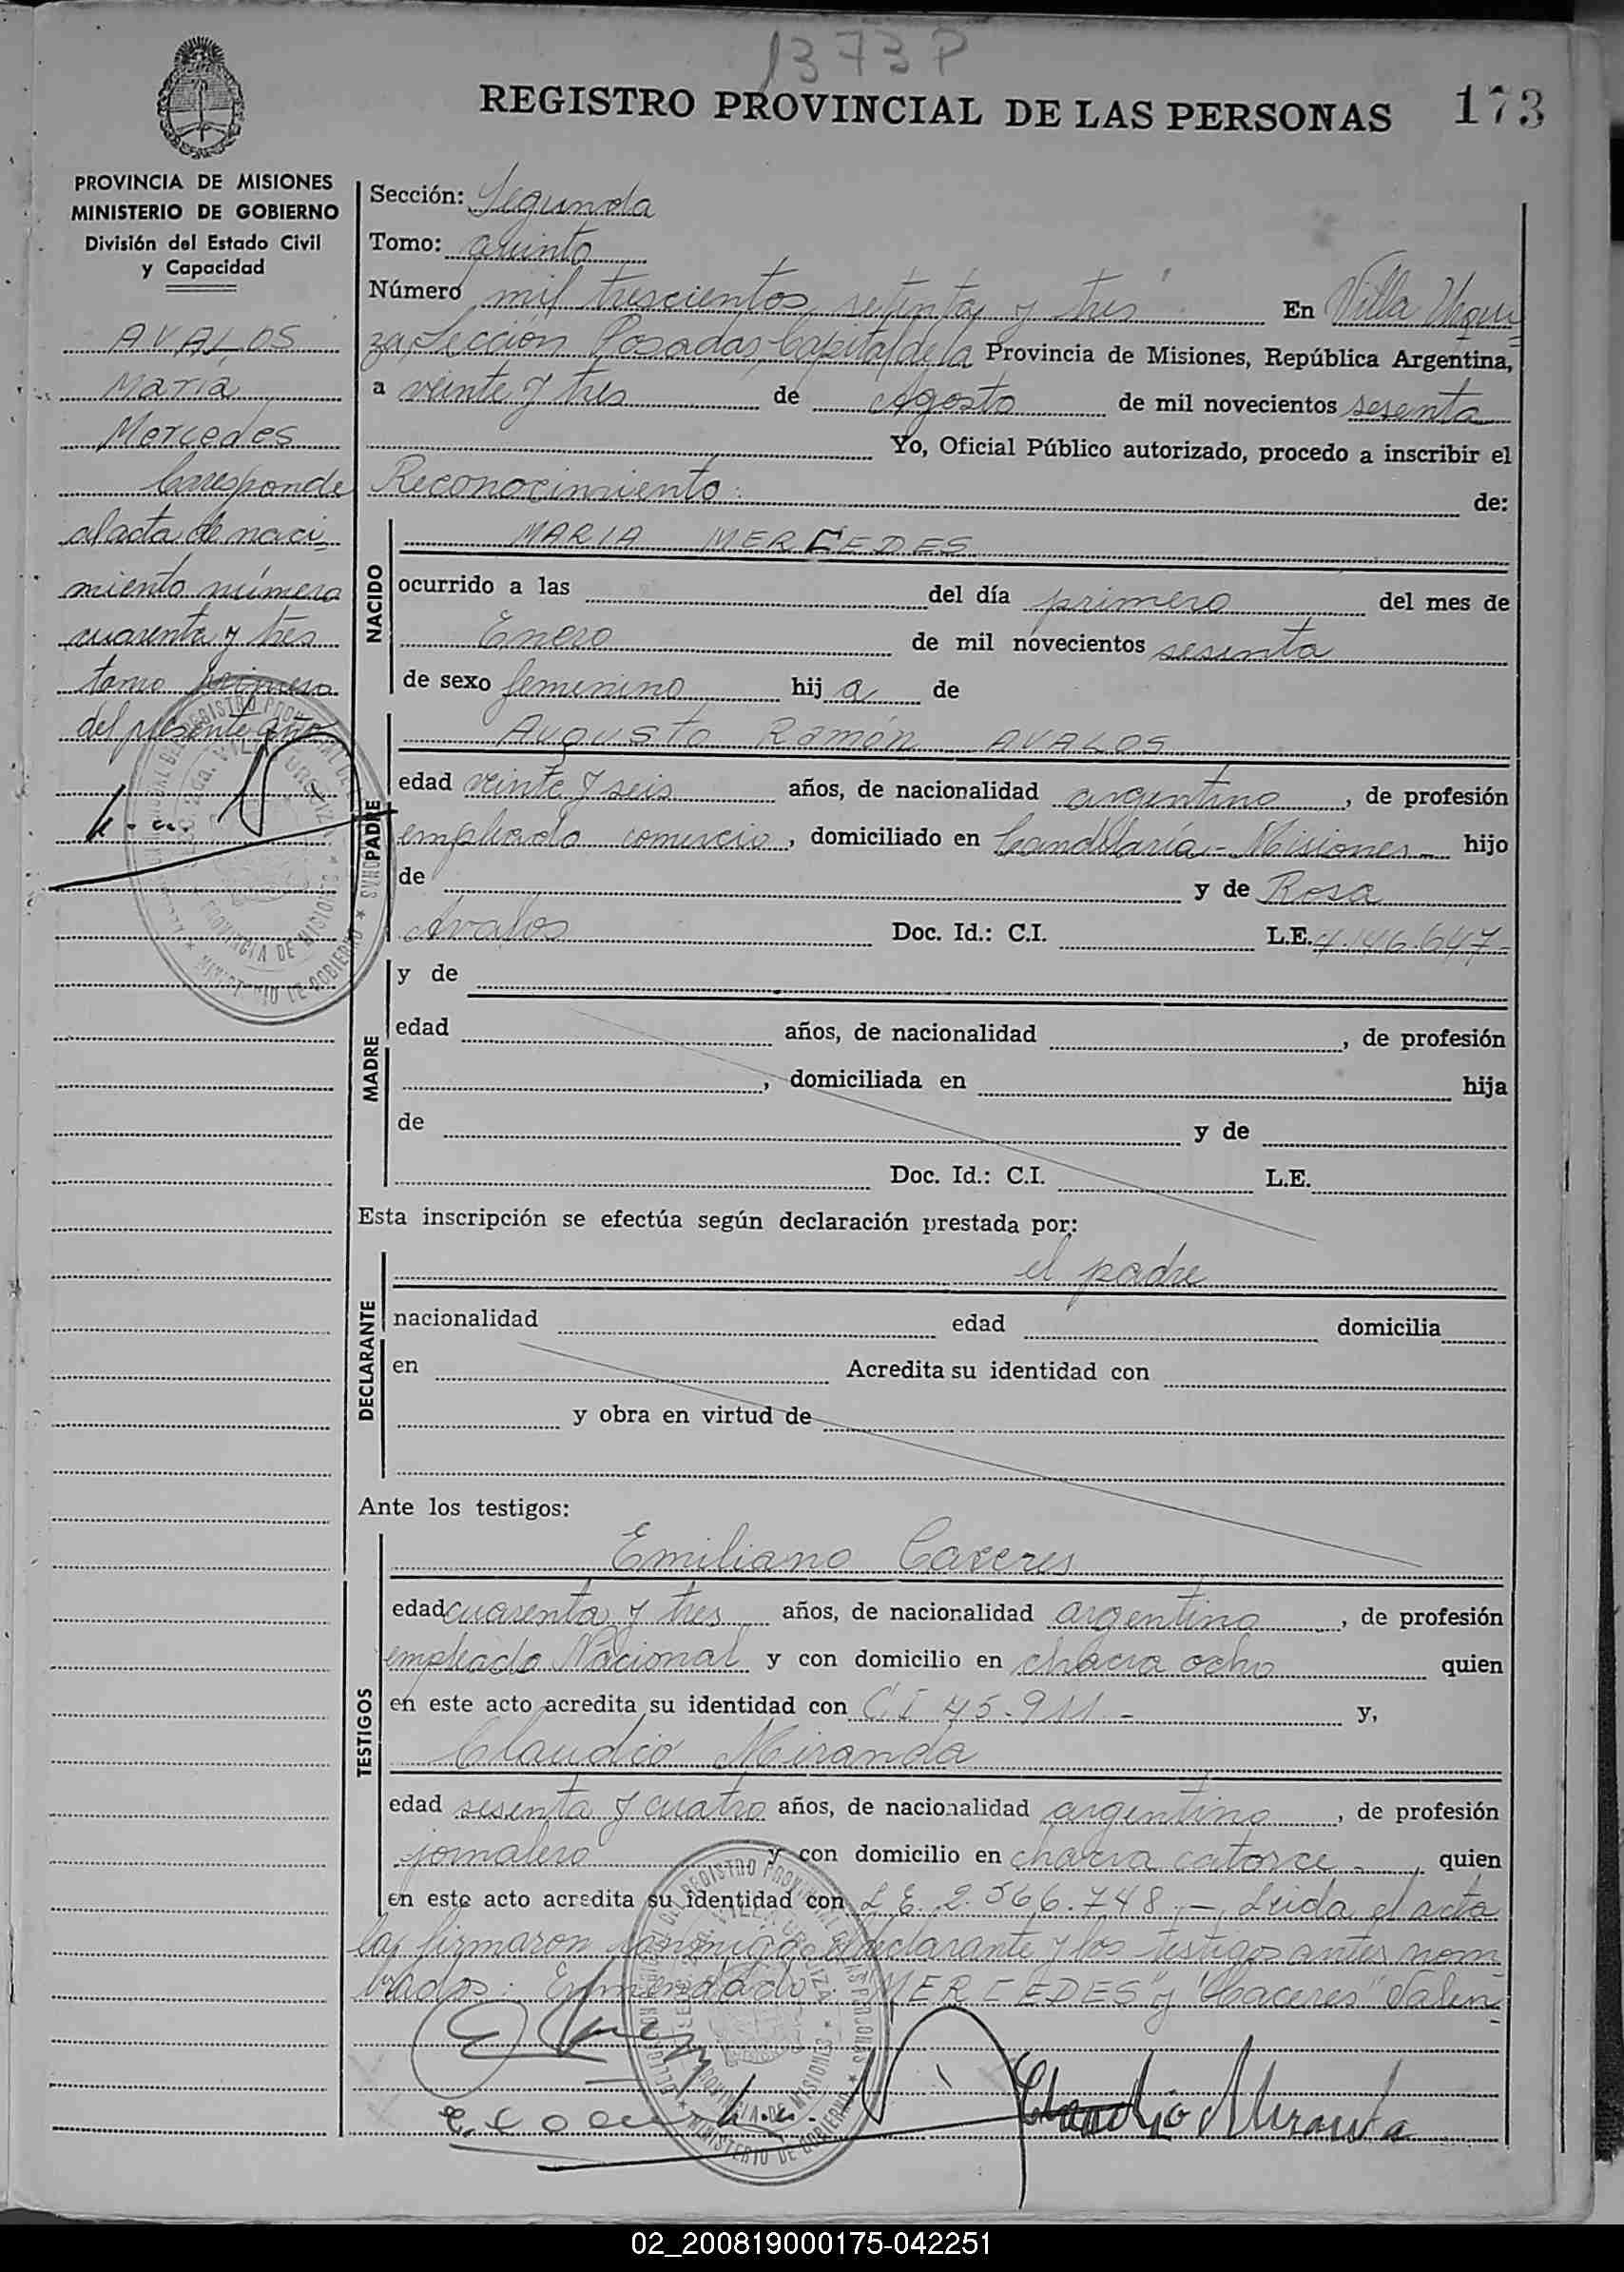 1373P
REGISTRO PROVINCIAL DE LAS PERSONAS 173
PROVINCIA DE MISIONES
MINISTERIO DE GOBIERNO
División del Estado Civil
y Capacidad
AVALOS
María
Mercedes
Corresponde
al acta de naci-
miento número
cuarenta y tres
tomo primero
del presente año
Sección: Segunda
Tomo: quinto
Número mil trescientos setenta y tres En Villa Urqui-
za, Sección Posadas, Capital de la Provincia de Misiones, República Argentina,
a veinte y tres de Agosto de mil novecientos sesenta
Yo, Oficial Público autorizado, procedo a inscribir el
Reconocimiento: de:
NACIDO
MARIA MERCEDES
ocurrido a las del día primero del mes de
Enero de mil novecientos sesenta
de sexo femenino hij a de
PADRE
Augusto Ramón AVALOS
edad veinte y seis años, de nacionalidad argentino, de profesión
empleado comercio, domiciliado en Candelaria - Misiones - hijo
de y de Rosa
Avalos Doc. Id.: C.I. L.E. 4.146.647-
MADRE
y de
edad años, de nacionalidad , de profesión
, domiciliada en hija
de y de
Doc. Id.: C.I. L.E.
Esta inscripción se efectúa según declaración prestada por:
DECLARANTE
el padre
nacionalidad edad domicilia
en Acredita su identidad con
y obra en virtud de
Ante los testigos:
TESTIGOS
Emiliano Caceres
edad cuarenta y tres años, de nacionalidad argentino, de profesión
empleado Nacional y con domicilio en chacra ocho quien
en este acto acredita su identidad con C.I 45.911 - y,
Claudio Miranda
edad sesenta y cuatro años, de nacionalidad argentino, de profesión
jornalero y con domicilio en chacra catorce - quien
en este acto acredita su identidad con L.E. 2.566.748 - Leida el acta
la firmaron conmigo el declarante y los testigos antes nom-
brados: Enmendado: "MERCEDES" y "Caceres" Valen-
Claudio Miranda
02_200819000175-042251